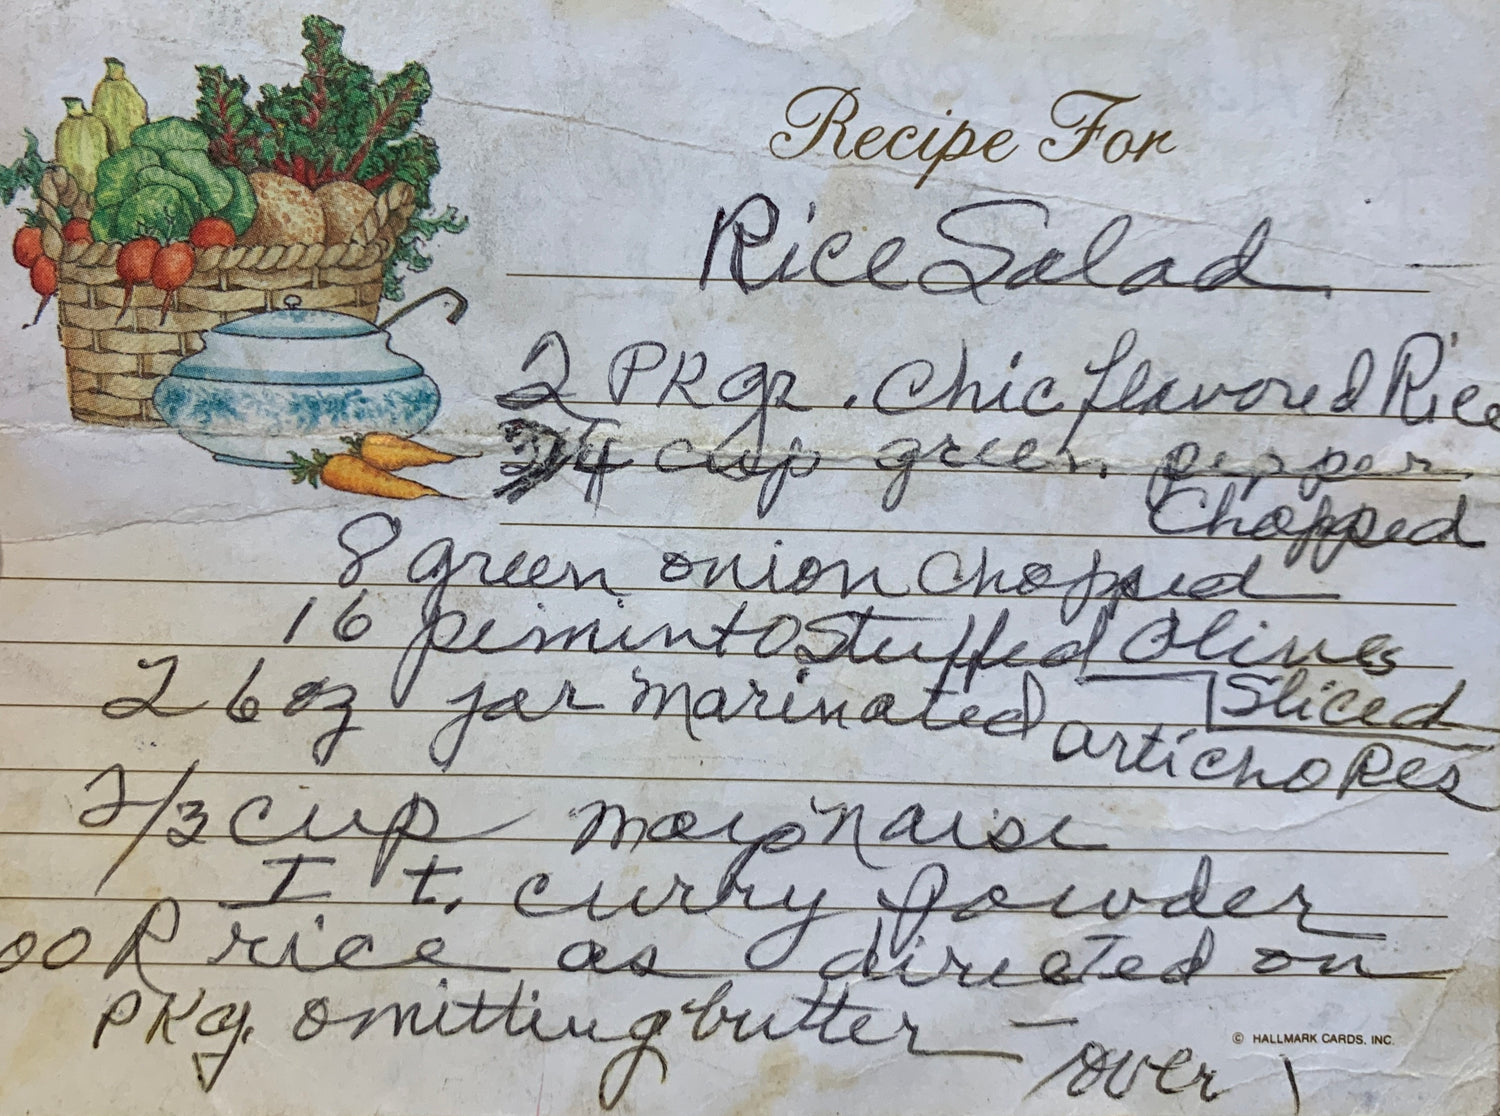 Recipe For
Rice Salad
2 PKgs. Chic flavored Rice
3/4 cup green pepper
Chopped
8 green onion Chopped
16 pimintO Stuffed Olives
Sliced
2 6 oz jar marinated
artichokes
2/3 cup mayonaise
I t. curry powder
ooK rice as directed on
PKg. omitting butter —
over
© HALLMARK CARDS, INC.